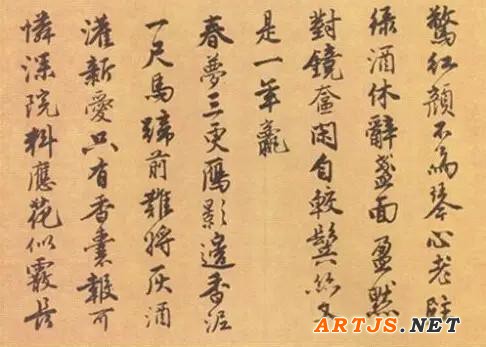 驚紅顏不為琴心老
綠酒休辭盞面盈黙
對鏡奩閑自較鬢絲又
是一年贏
春夢三更鴈影邊香泥
一尺馬蹄前難將灰酒
灌新愛只有香囊報可
憐深院料應花似霰長
ARTJS.NET